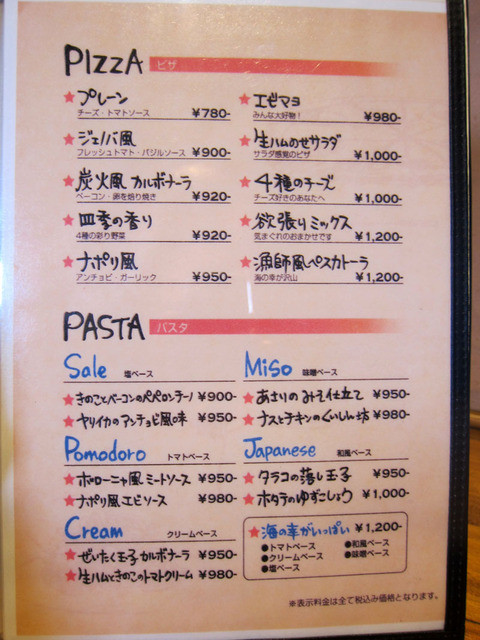 PIZZA ピザ
★プレーン
チーズ・トマトソース ¥780-
★ジェノバ風
フレッシュトマト・バジルソース ¥900-
★炭火風 カルボナーラ
ベーコン・卵を焙り焼き ¥920-
★四季の香り
4種の彩り野菜 ¥920-
★ナポリ風
アンチョビ・ガーリック ¥950-
★エビマヨ
みんな大好物! ¥980-
★生ハムのせサラダ
サラダ感覚のピザ ¥1,000-
★4種のチーズ
チーズ好きのあなたへ ¥1,000-
★欲張りミックス
気まぐれのおまかせです ¥1,200-
★漁師風ペスカトーラ
海の幸が沢山 ¥1,200-
PASTA パスタ
Sale 塩ベース
★きのことベーコンのペペロンチーノ ¥900-
★ヤリイカのアンチョビ風味 ¥950-
Pomodoro トマトベース
★ボローニャ風 ミートソース ¥950-
★ナポリ風 エビソース ¥980-
Cream クリームベース
★ぜいたく玉子 カルボナーラ ¥950-
★生ハムときのこのトマトクリーム ¥980-
Miso 味噌ベース
★あさりのみそ仕立て ¥950-
★ナスとチキンのくいしん坊 ¥980-
Japanese 和風ベース
★タラコの落し玉子 ¥950-
★ホタテのゆずこしょう ¥1,000-
★海の幸がいっぱい ¥1,200-
●トマトベース ●和風ベース
●クリームベース ●味噌ベース
●塩ベース
※表示料金は全て税込み価格となります。